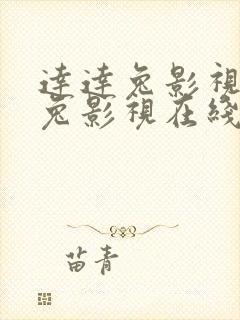 達達兔影視
兔影視在綫
苗青